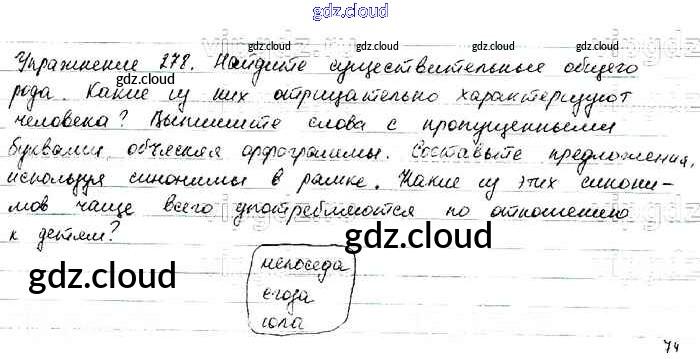 gdz.cloud
Упражнение 278. Найдите существительные общего
рода. Какие из них отрицательно характеризуют
человека? Выпишите слова с пропущенными
буквами, объясняя орфограммы. Составьте предложения,
используя синонимы в рамке. Какие из этих синони-
мов чаще всего употребляются по отношению
к детям?
непоседа
егоза
юла
gdz.cloud
gdz.cloud
gdz.cloud
gdz.cloud
gdz.cloud
gdz.cloud
gdz.cloud
74